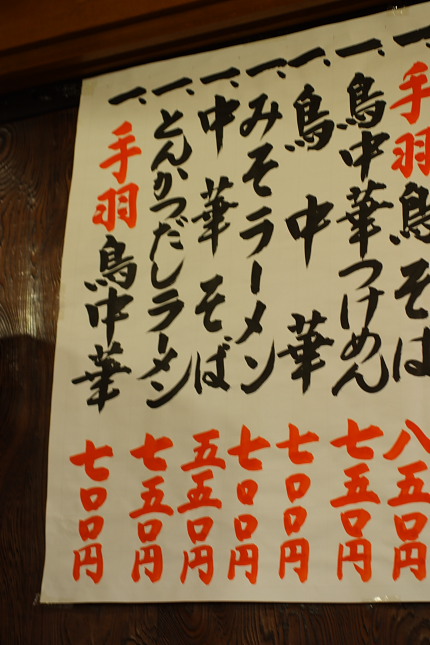 一、手羽鳥そば 八五〇円
一、鳥中華つけめん 七五〇円
一、鳥中華 七〇〇円
一、みそラーメン 七〇〇円
一、中華そば 五五〇円
一、とんかつだしラーメン 七五〇円
一、手羽鳥中華 七〇〇円